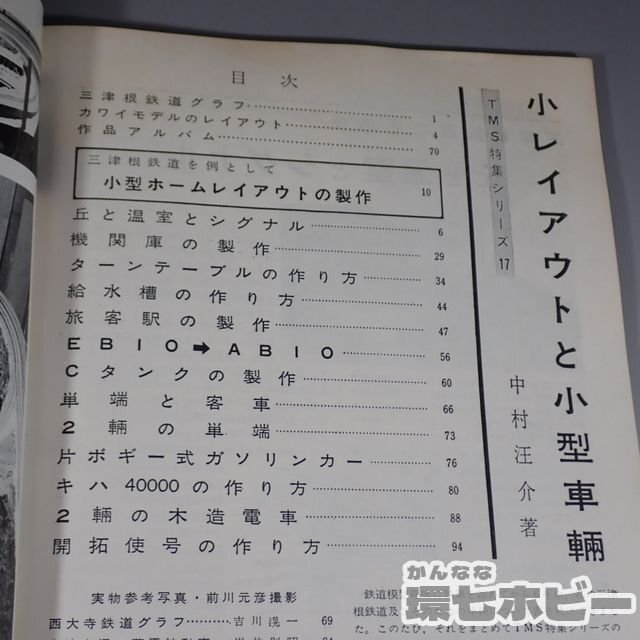 小レイアウトと小型車輛
TMS特集シリーズ17
中村汪介著
目次
三津根鉄道グラフ 1
カワイモデルのレイアウト 4
作品アルバム 70
三津根鉄道を例として
小型ホームレイアウトの製作 10
丘と温室とシグナル 6
機関庫の製作 29
ターンテーブルの作り方 34
給水槽の作り方 44
旅客駅の製作 47
EB10➡AB10 56
Cタンクの製作 60
単端と客車 66
2輛の単端 73
片ボギー式ガソリンカー 76
キハ40000の作り方 80
2輛の木造電車 88
開拓使号の作り方 94
実物参考写真・前川元彦撮影
西大寺鉄道グラフ 吉川滉一 69
鉄道模
根鉄道及
た。このたび、それをまとめてTMS特集シリーズの
かんなな
環七ホビー